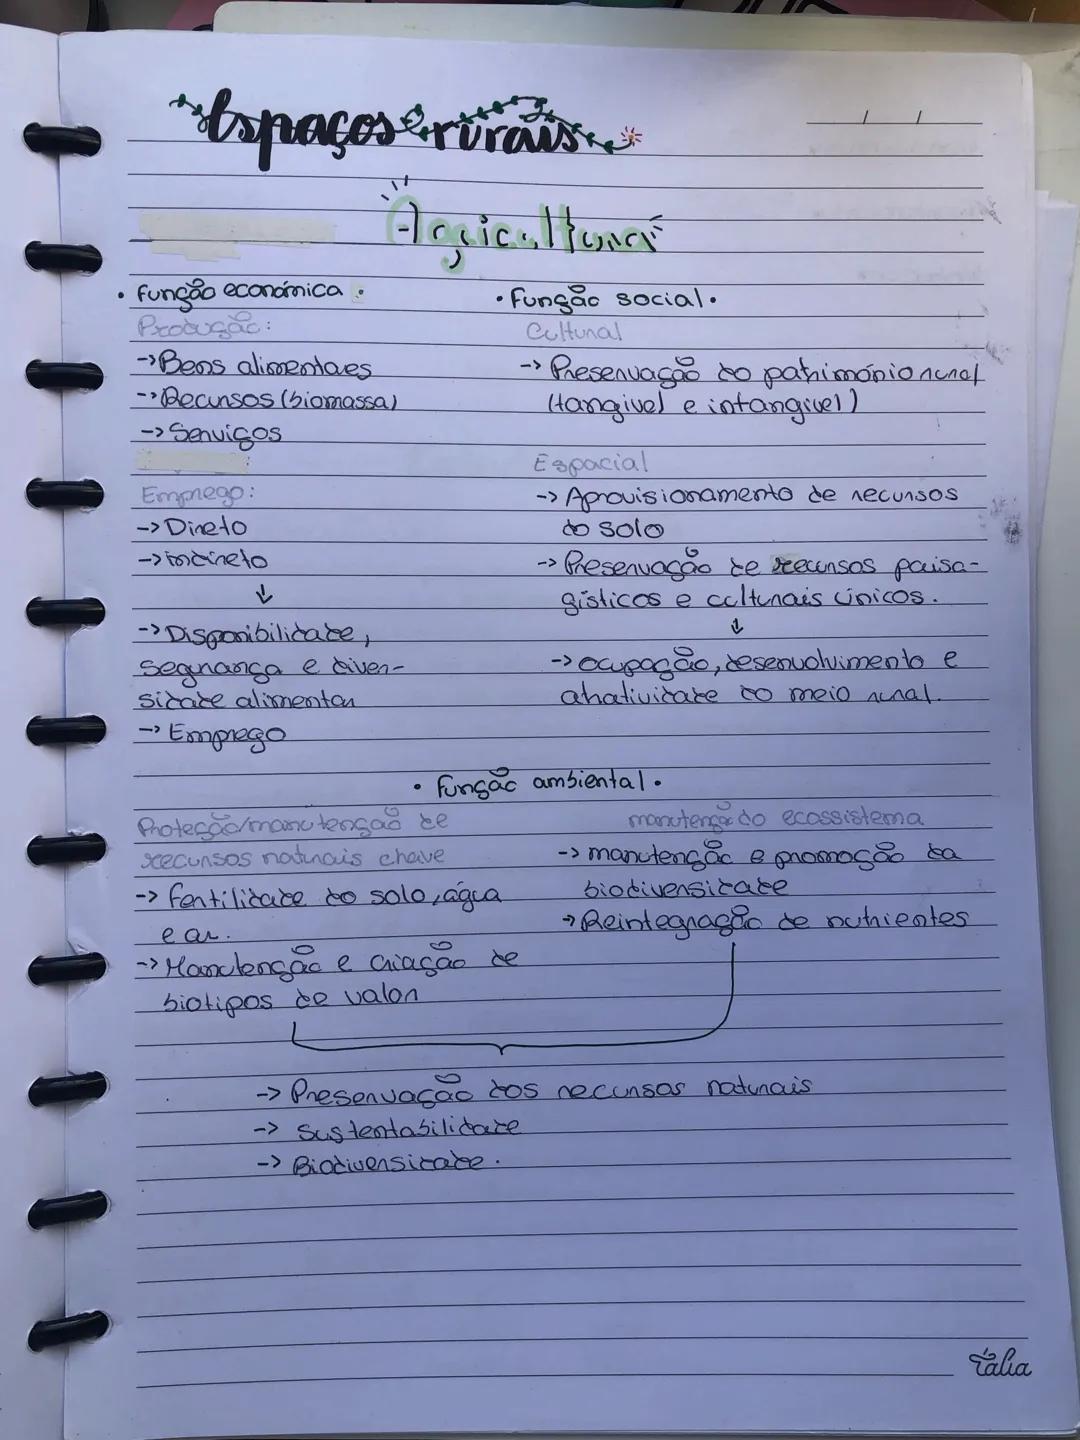 Espaços rurais
Agricultura
• função económica •
Produção:
-> Bens alimentares
-> Recursos (biomassa)
-> Serviços
Emprego:
-> Direto
-> indireto
↓
-> Disponibilidade,
segurança e diver-
sidade alimentar
-> Emprego
• função social •
Cultural
-> Preservação do património rural
(tangível e intangível)
Espacial
-> Aprovisionamento de recursos
do solo
-> Preservação de recursos paisa-
gísticos e culturais únicos.
↓
-> ocupação, desenvolvimento e
atratividade do meio rural.
• função ambiental •
Proteção/manutenção de
recursos naturais chave
-> fertilidade do solo, água
e ar.
-> Manutenção e criação de
biotipos de valor
manutenção do ecossistema
-> manutenção e promoção da
biodiversidade
-> Reintegração de nutrientes
-> Preservação dos recursos naturais
-> Sustentabilidade
-> Biodiversidade.
Tália